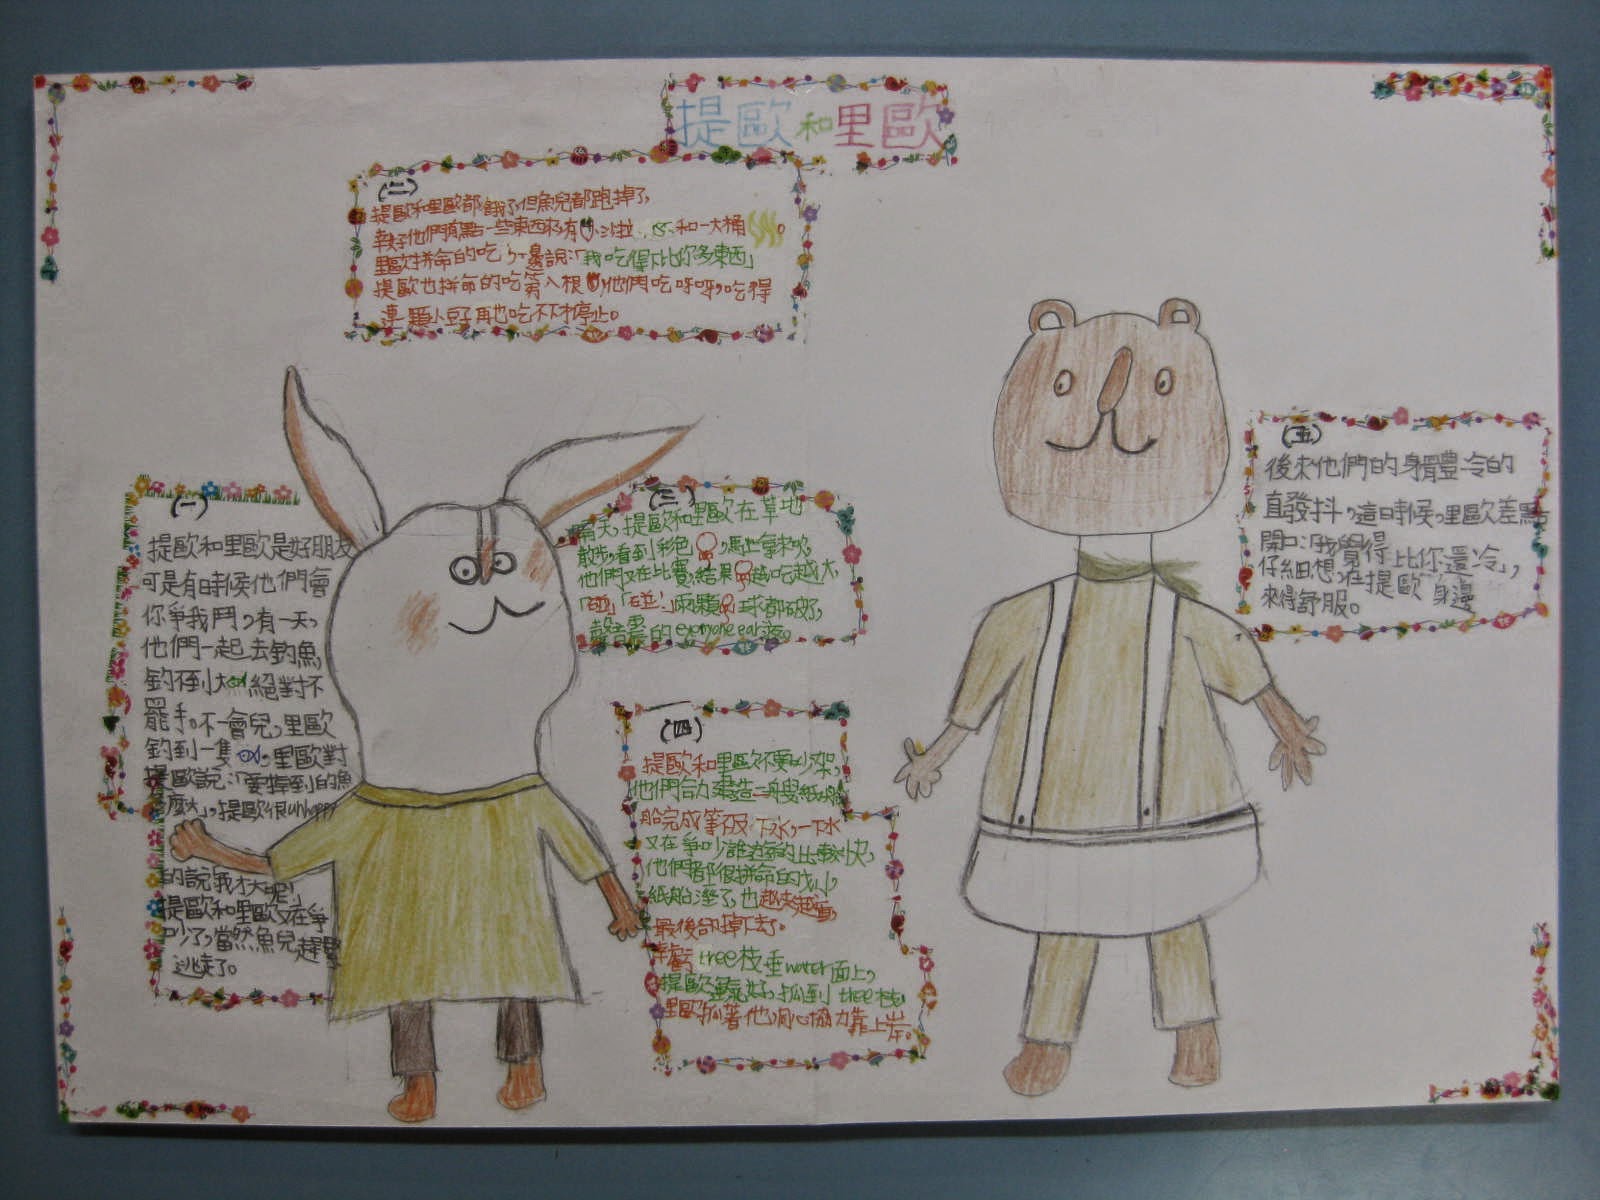 提歐和里歐
(一)
提歐和里歐是好朋友
可是有時候他們會
你爭我鬥,有一天,
他們一起去釣魚,
釣不到大 絕對不
罷手。不一會兒,里歐
釣到一隻 ,里歐對
提歐說:「要掉到的魚
麼大」,提歐很unhappy
的說我才大呢!
提歐和里歐又在爭
吵了,當然魚兒趕緊
逃走了。
(二)
提歐和里歐都餓了,但魚兒都跑掉了,
幸好他們有點一些東西來,有 、沙拉、 、和一大桶 。
里歐拼命的吃,邊說:「我吃得下比你多東西」
提歐也拼命的吃第八根 ,他們吃呀呀,吃得
連一顆小豆子再也吃不下才停止。
(三)
隔天,提歐和里歐在草地
散步,看到彩色 ,馬上拿來吹,
他們又在比賽,結果 越吃越大,
「碰」「碰!」兩顆 球都破了,
聲音震的everyone ear疼。
(四)
提歐和里歐不要吵架,
他們合力建造二艘紙船
船完成等不及下水,一下水
又在爭吵誰遊的比較快,
他們都很拼命的划,
紙船溼了,也越來越重,
最後卻掉下去。
幸虧 tree枝垂water面上,
提歐運氣好,抓到 tree枝,
里歐抓著他,同心協力靠上岸。
(五)
後來他們的身體冷的
直發抖,這時候,里歐差點
開口:「我覺得比你還冷」,
仔細想,在提歐身邊
來得舒服。